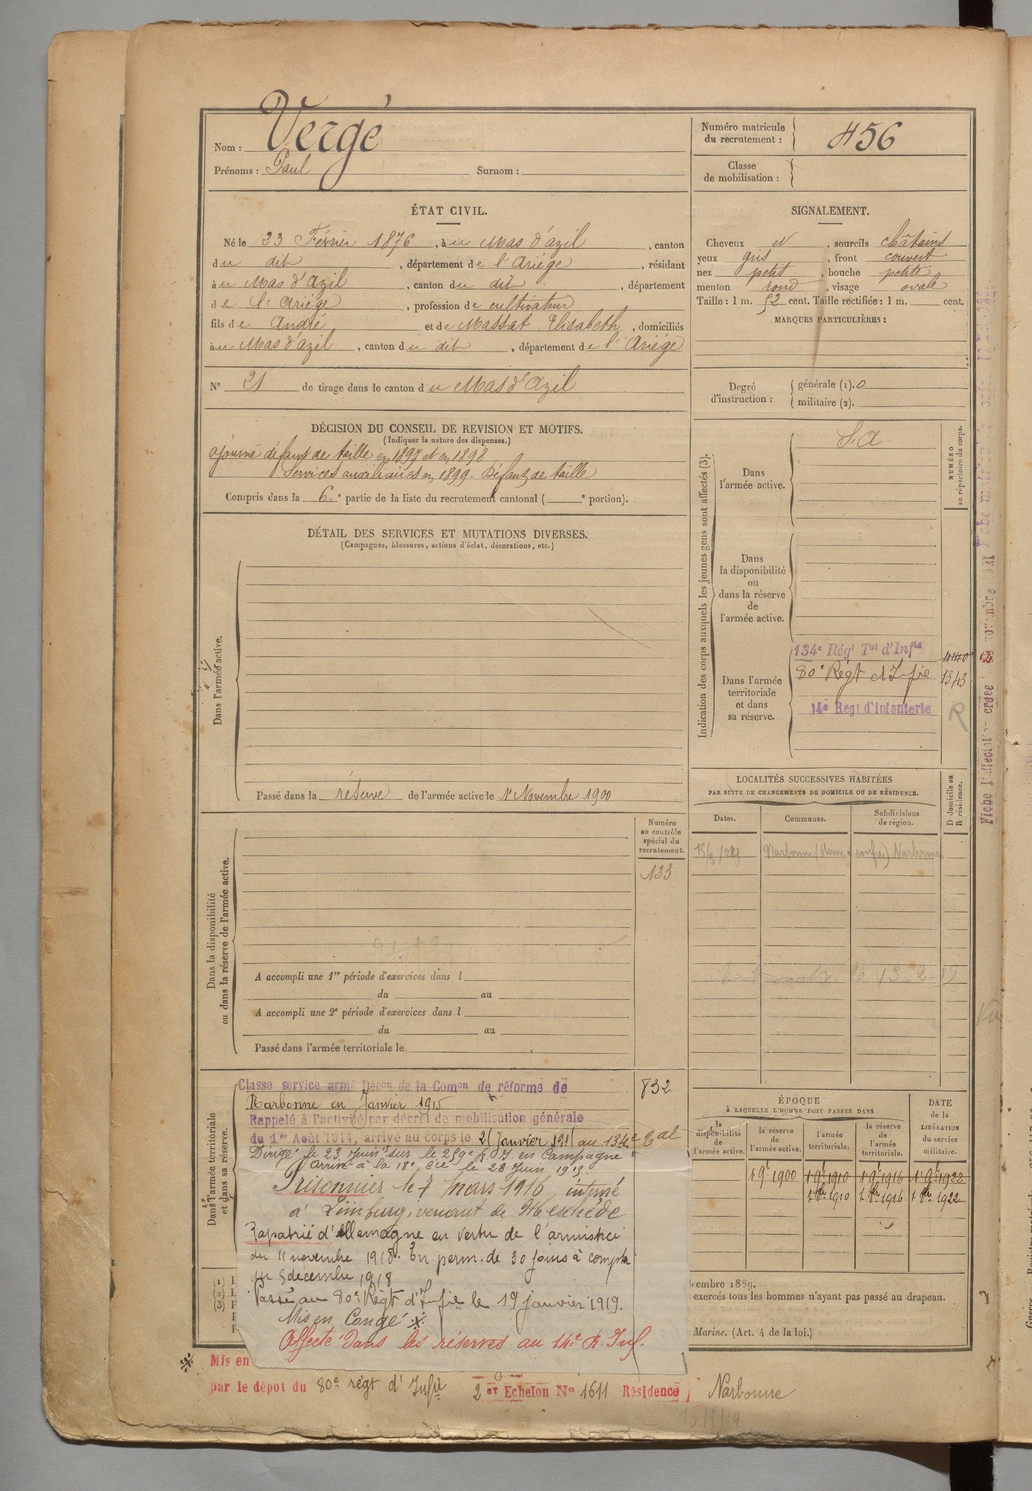 Nom : Vergé
Prénoms : Paul Surnom :
Numéro matricule du recrutement : 456
Classe de mobilisation :
ÉTAT CIVIL.
Né le 23 Février 1876, à u Mas d'azil, canton
d u dit, département d e l'Ariège, résidant
à u Mas d'Azil, canton d u dit, département
d e l'Ariège, profession d e cultivateur
fils d e André et d e Massat Elisabeth, domiciliés
à u Mas d'azil, canton d u dit, département d e l'Ariège
N° 21 de tirage dans le canton d u Mas d'Azil
SIGNALEMENT.
Cheveux N, sourcils châtains
yeux gris, front couvert
nez petit, bouche petite
menton rond, visage ovale
Taille : 1 m. 52 cent. Taille rectifiée : 1 m. cent.
MARQUES PARTICULIÈRES :
Degré d'instruction : générale (1). 0
militaire (2).
DÉCISION DU CONSEIL DE REVISION ET MOTIFS.
(Indiquer la nature des dispenses.)
ajourné défaut de taille en 1897 et en 1898
Services auxiliaires en 1899. Défaut de taille
Compris dans la 6e partie de la liste du recrutement cantonal ( e portion).
DÉTAIL DES SERVICES ET MUTATIONS DIVERSES.
(Campagnes, blessures, actions d'éclat, décorations, etc.)
Dans l'armée active.
Passé dans la réserve de l'armée active le 1er Novembre 1900
Indication des corps auxquels les jeunes gens sont affectés (3).
NUMÉRO au répertoire du corps.
Dans l'armée active.
S.A
Dans la disponibilité ou dans la réserve de l'armée active.
Dans l'armée territoriale et dans sa réserve.
134e Régt Tal d'Infie
80e Régt d'Infie 1343
14e Regt d'Infanterie R
LOCALITÉS SUCCESSIVES HABITÉES
PAR SUITE DE CHANGEMENTS DE DOMICILE OU DE RÉSIDENCE.
D domicile ou R résidence.
Dates. Communes. Subdivisions de région.
Narbonne
Dans la disponibilité ou dans la réserve de l'armée active.
Numéro au contrôle spécial du recrutement.
123
A accompli une 1re période d'exercices dans l
du au
A accompli une 2e période d'exercices dans l
du au
Passé dans l'armée territoriale le
Dans l'armée territoriale et dans sa réserve.
832
Classe service armé Décon de la Comon de réforme de
Narbonne en Janvier 1915
Rappelé à l'activité par décret de mobilisation générale
du 1er Août 1914, arrivé au corps le 21 Janvier 191 au 134e Tal
Dirigé le 23 Juin sur le 259e R.I en Campagne
arrivé à la 18e Cie le 28 Juin 1915
Prisonnier le 7 mars 1916, interné
à Limburg, venant de Meschède
Rapatrié d'Allemagne en vertu de l'armistice
du 11 novembre 1918. En perm. de 30 jours à compter
du 5 décembre 1918
Passé au 80e Régt d'Infie le 19 janvier 1919.
Mis en Congé
Affecté dans les réserves au 14e R. Inf.
ÉPOQUE
À LAQUELLE L'HOMME DOIT PASSER DANS
la disponibilité de l'armée active. la réserve de l'armée active. l'armée territoriale. la réserve de l'armée territoriale.
DATE de la LIBÉRATION du service militaire.
1 9e 1900 1 9e 1910 1 9e 1916 1 9e 1922
1 8bre 1910 1 8bre 1916 1 8bre 1922
cembre 1889.
exercés tous les hommes n'ayant pas passé au drapeau.
Marine. (Art. 4 de la loi.)
Mis en
par le dépot du 80e régt d'Infie 2er Echelon N° 1611 Résidence Narbonne